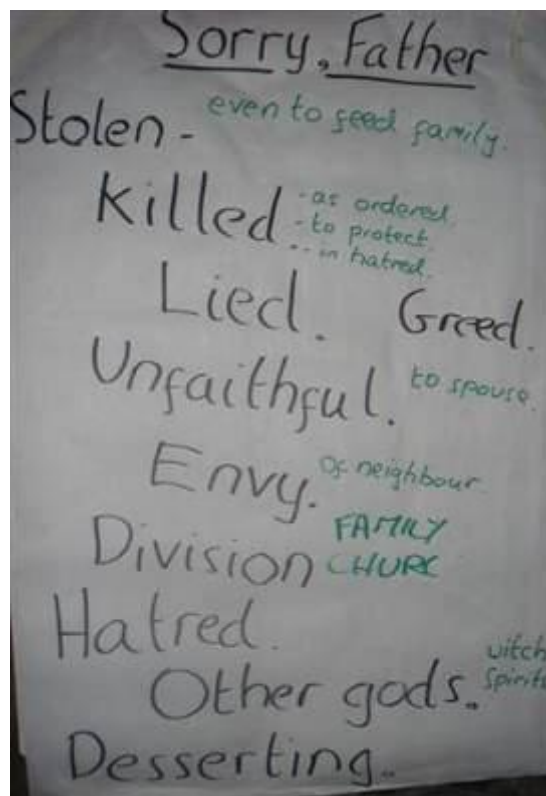 Sorry, Father
Stolen - even to feed family.
Killed - as ordered.
- to protect
- in hatred.
Lied. Greed.
Unfaithful. to spouse.
Envy. of neighbour.
Division FAMILY
CHURC
Hatred.
Other gods. witch
spirits
Desserting..